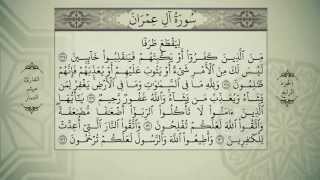 سُورَةُ آلِ عِمْرَانَ
لِيَقْطَعَ طَرَفًا
مِّنَ ٱلَّذِينَ كَفَرُوٓا۟ أَوْ يَكْبِتَهُمْ فَيَنقَلِبُوا۟ خَآئِبِينَ
لَيْسَ لَكَ مِنَ ٱلْأَمْرِ شَىْءٌ أَوْ يَتُوبَ عَلَيْهِمْ أَوْ يُعَذِّبَهُمْ فَإِنَّهُمْ
ظَـٰلِمُونَ وَلِلَّهِ مَا فِى ٱلسَّمَـٰوَٰتِ وَمَا فِى ٱلْأَرْضِ يَغْفِرُ لِمَن
يَشَآءُ وَيُعَذِّبُ مَن يَشَآءُ وَٱللَّهُ غَفُورٌ رَّحِيمٌ يَـٰٓأَيُّهَا
ٱلَّذِينَ ءَامَنُوا۟ لَا تَأْكُلُوا۟ ٱلرِّبَوٰٓا۟ أَضْعَـٰفًا مُّضَـٰعَفَةً
وَٱتَّقُوا۟ ٱللَّهَ لَعَلَّكُمْ تُفْلِحُونَ وَٱتَّقُوا۟ ٱلنَّارَ ٱلَّتِىٓ أُعِدَّتْ
لِلْكَـٰفِرِينَ وَأَطِيعُوا۟ ٱللَّهَ وَٱلرَّسُولَ لَعَلَّكُمْ تُرْحَمُونَ
الجزء
الرابع
القارئ
ميثم
التمار